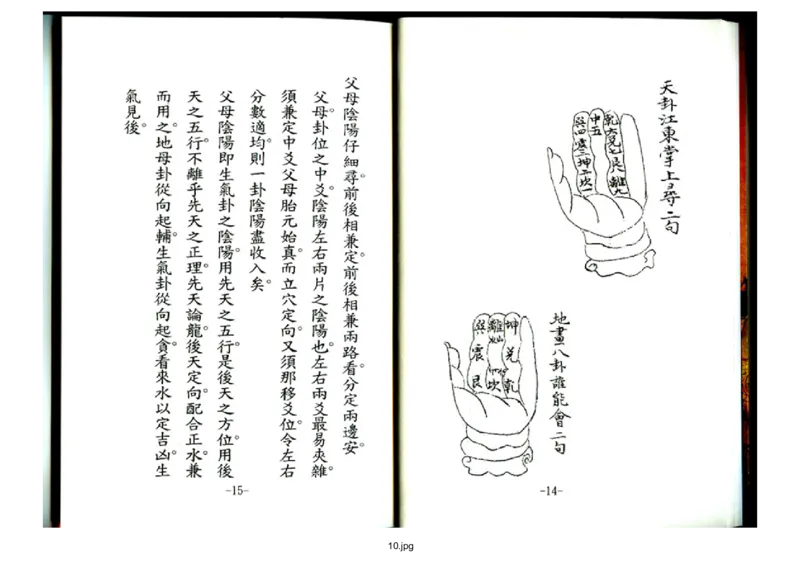 天卦江東掌上尋二句
乾六兌七艮八離九
中五
巽四震三坤二坎一
地畫八卦誰能會二句
坤兌乾
離坎
巽震艮
-14-
父母陰陽仔細尋。前後相兼定。前後相兼兩路看。分定兩邊安。
父母卦位之中爻。陰陽左右兩片之陰陽也。左右兩爻最易夾雜。
須兼定中爻父母胎元始真。而立穴定向。又須那移爻位。令左右
分數適均。則一卦陰陽盡收入矣。
父母陰陽即生氣卦之陰陽。用先天之五行。是後天之方位。用後
天之五行。不離乎先天之正理。先天論龍。後天定向。配合正水。兼
而用之。地母卦從向起輔。生氣卦從向起貪。看來水以定吉凶。生
氣見後。
-15-
10.jpg